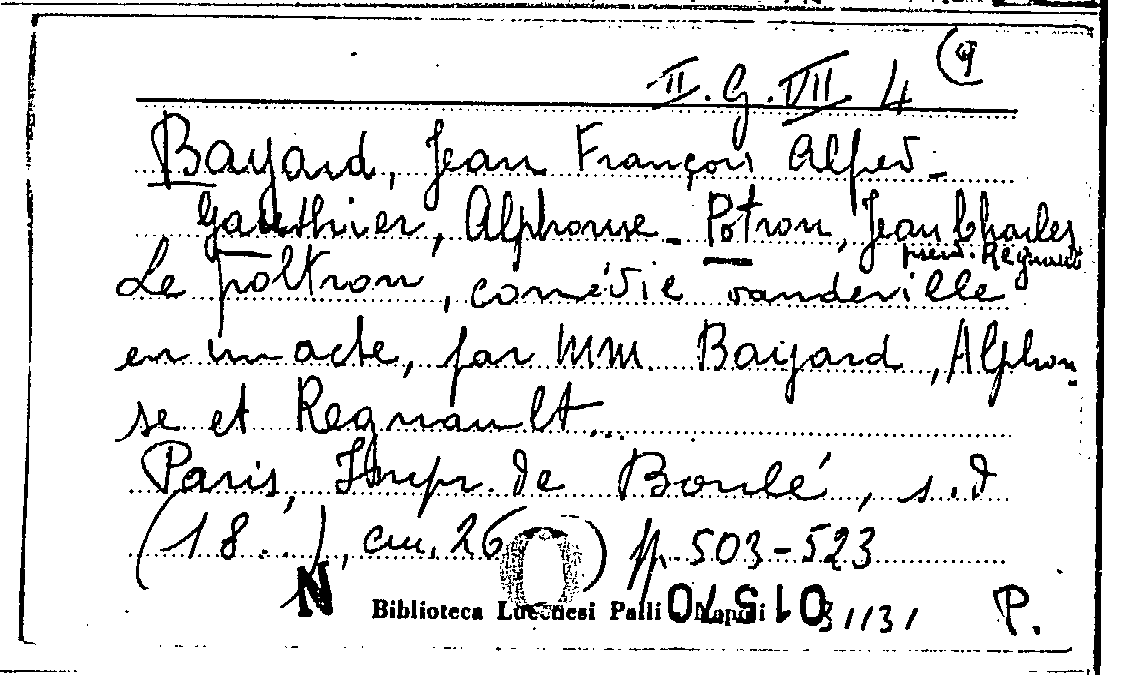 II. G. VII. 4 (9
Bayard, Jean François Alfred -
Gauthier, Alphonse - Potron, Jean Charles
pseud. Regnault
Le poltron, comédie vaudeville
en un acte, par MM. Bayard, Alphon-
se et Regnault...
Paris, Impr. de Boulé, s.d
(18..), cm. 26 ) pp. 503-523
N Biblioteca Lucchesi Palli Napoli P.